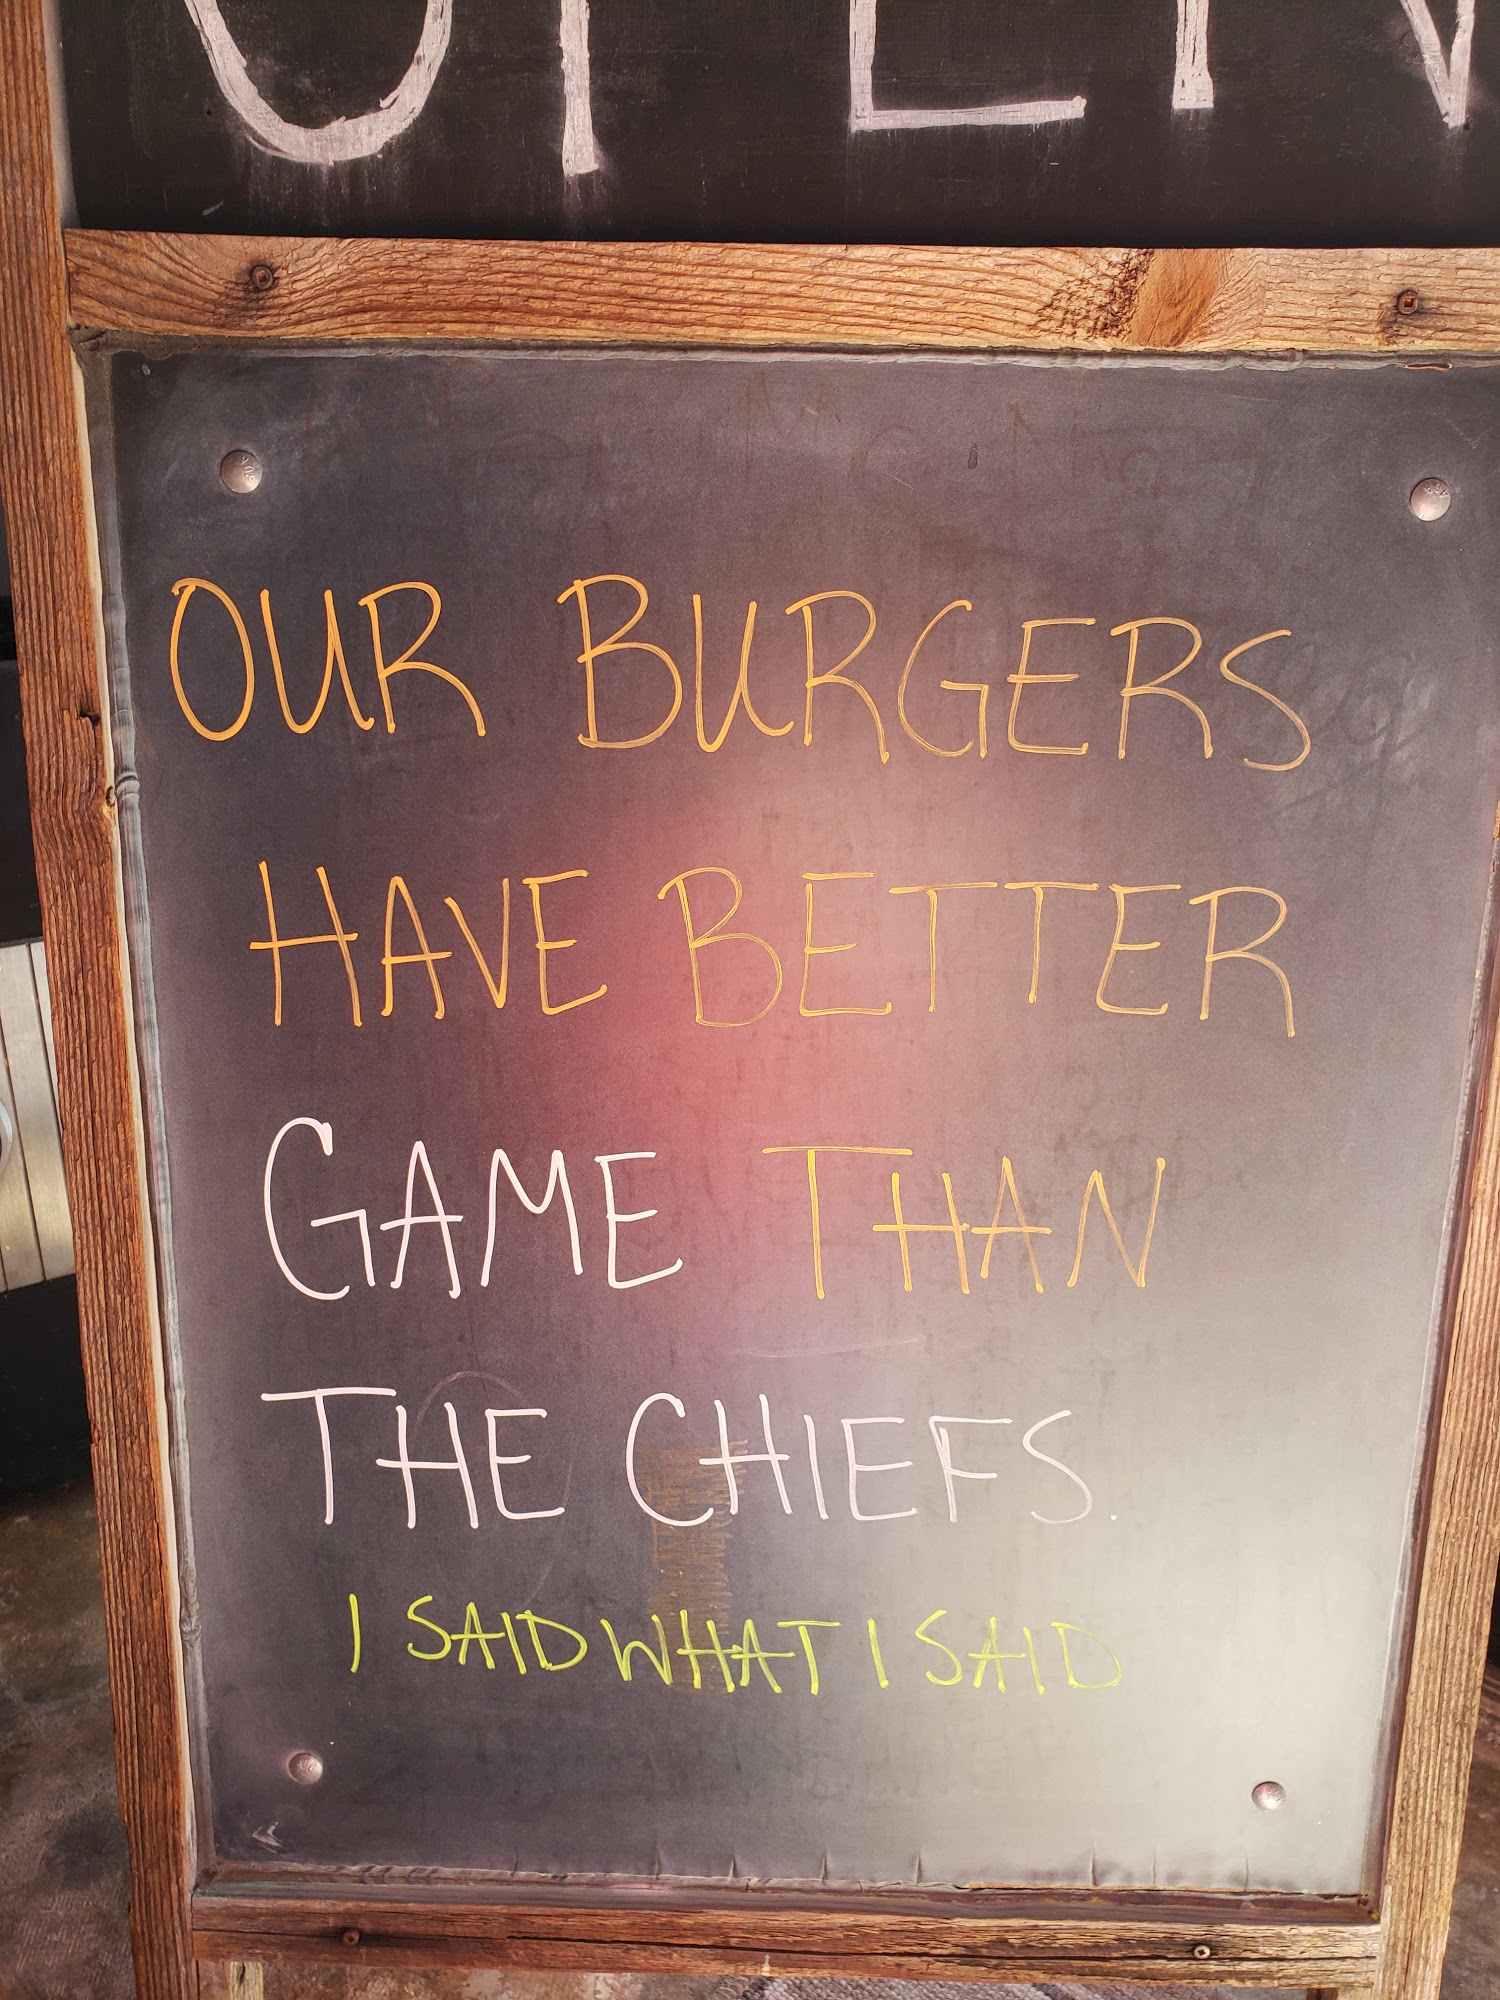 OPEN
OUR BURGERS
HAVE BETTER
GAME THAN
THE CHIEFS.
I SAID WHAT I SAID